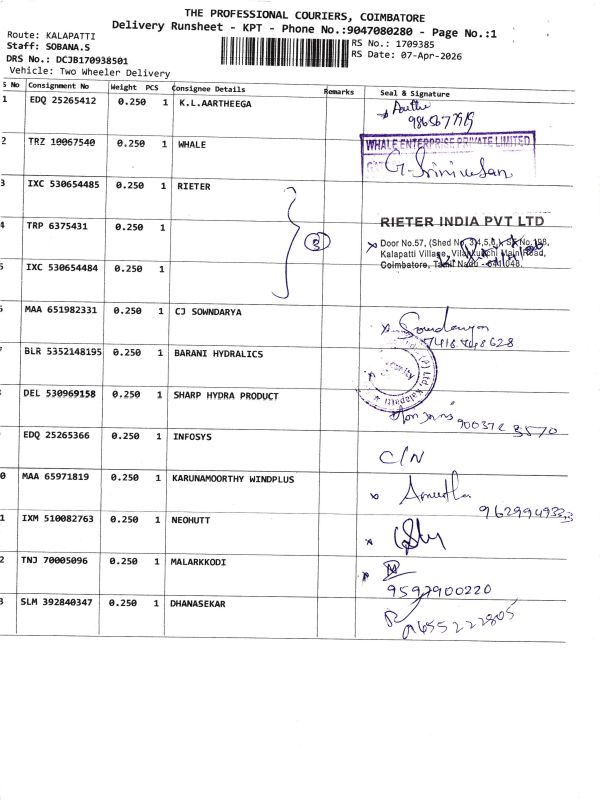 THE PROFESSIONAL COURIERS, COIMBATORE
Delivery Runsheet - KPT - Phone No.:9047080280 - Page No.:1
Route: KALAPATTI
Staff: SOBANA.S
DRS No.: DCJB170938501
Vehicle: Two Wheeler Delivery
RS No.: 1709385
RS Date: 07-Apr-2026
S No Consignment No Weight PCS Consignee Details Remarks Seal & Signature
1 EDQ 25265412 0.250 1 K.L.AARTHEEGA
2 TRZ 10067540 0.250 1 WHALE
WHALE ENTERPRISE PRIVATE LIMITED
G. Srinivasan
3 IXC 530654485 0.250 1 RIETER
4 TRP 6375431 0.250 1
3
RIETER INDIA PVT LTD
Door No.57, (Shed No. 3,4,5,6,) S.F.No.198,
Kalapatti Village, Vilankurichi Main Road,
Coimbatore, Tamil Nadu - 641 048.
5 IXC 530654484 0.250 1
6 MAA 651982331 0.250 1 CJ SOWNDARYA
Sowdarya
7 BLR 5352148195 0.250 1 BARANI HYDRALICS
8 DEL 530969158 0.250 1 SHARP HYDRA PRODUCT
900372 3570
EDQ 25265366 0.250 1 INFOSYS
C/N
0 MAA 65971819 0.250 1 KARUNAMOORTHY WINDPLUS
1 IXM 510082763 0.250 1 NEOHUTT
2 TNJ 70005096 0.250 1 MALARKKODI
9597900220
3 SLM 392840347 0.250 1 DHANASEKAR
9655222805